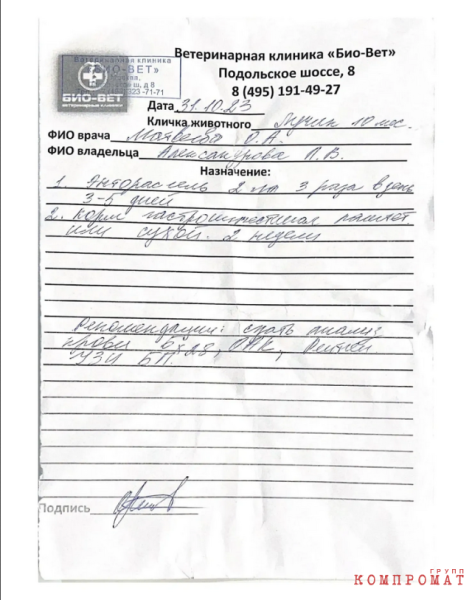 Ветеринарная клиника
«БИО-ВЕТ»
БИО-ВЕТ
ВЕТЕРИНАРНЫЕ КЛИНИКИ
Ветеринарная клиника «Био-Вет»
Подольское шоссе, 8
8 (495) 191-49-27
Дата 31.10.23
Кличка животного 10 мес.
ФИО врача Матвеева О.А.
ФИО владельца Александрова Л.В.
Назначение:
1. 2 3 раза в день
3-5 дней
2. Корм гастроинтестинал паштет
или сухой. 2 недели
Рекомендации: сдать анализ
крови б/х, ОАК, Рентген
УЗИ БП.
Подпись
ГРУПП
КОМПРОМАТ